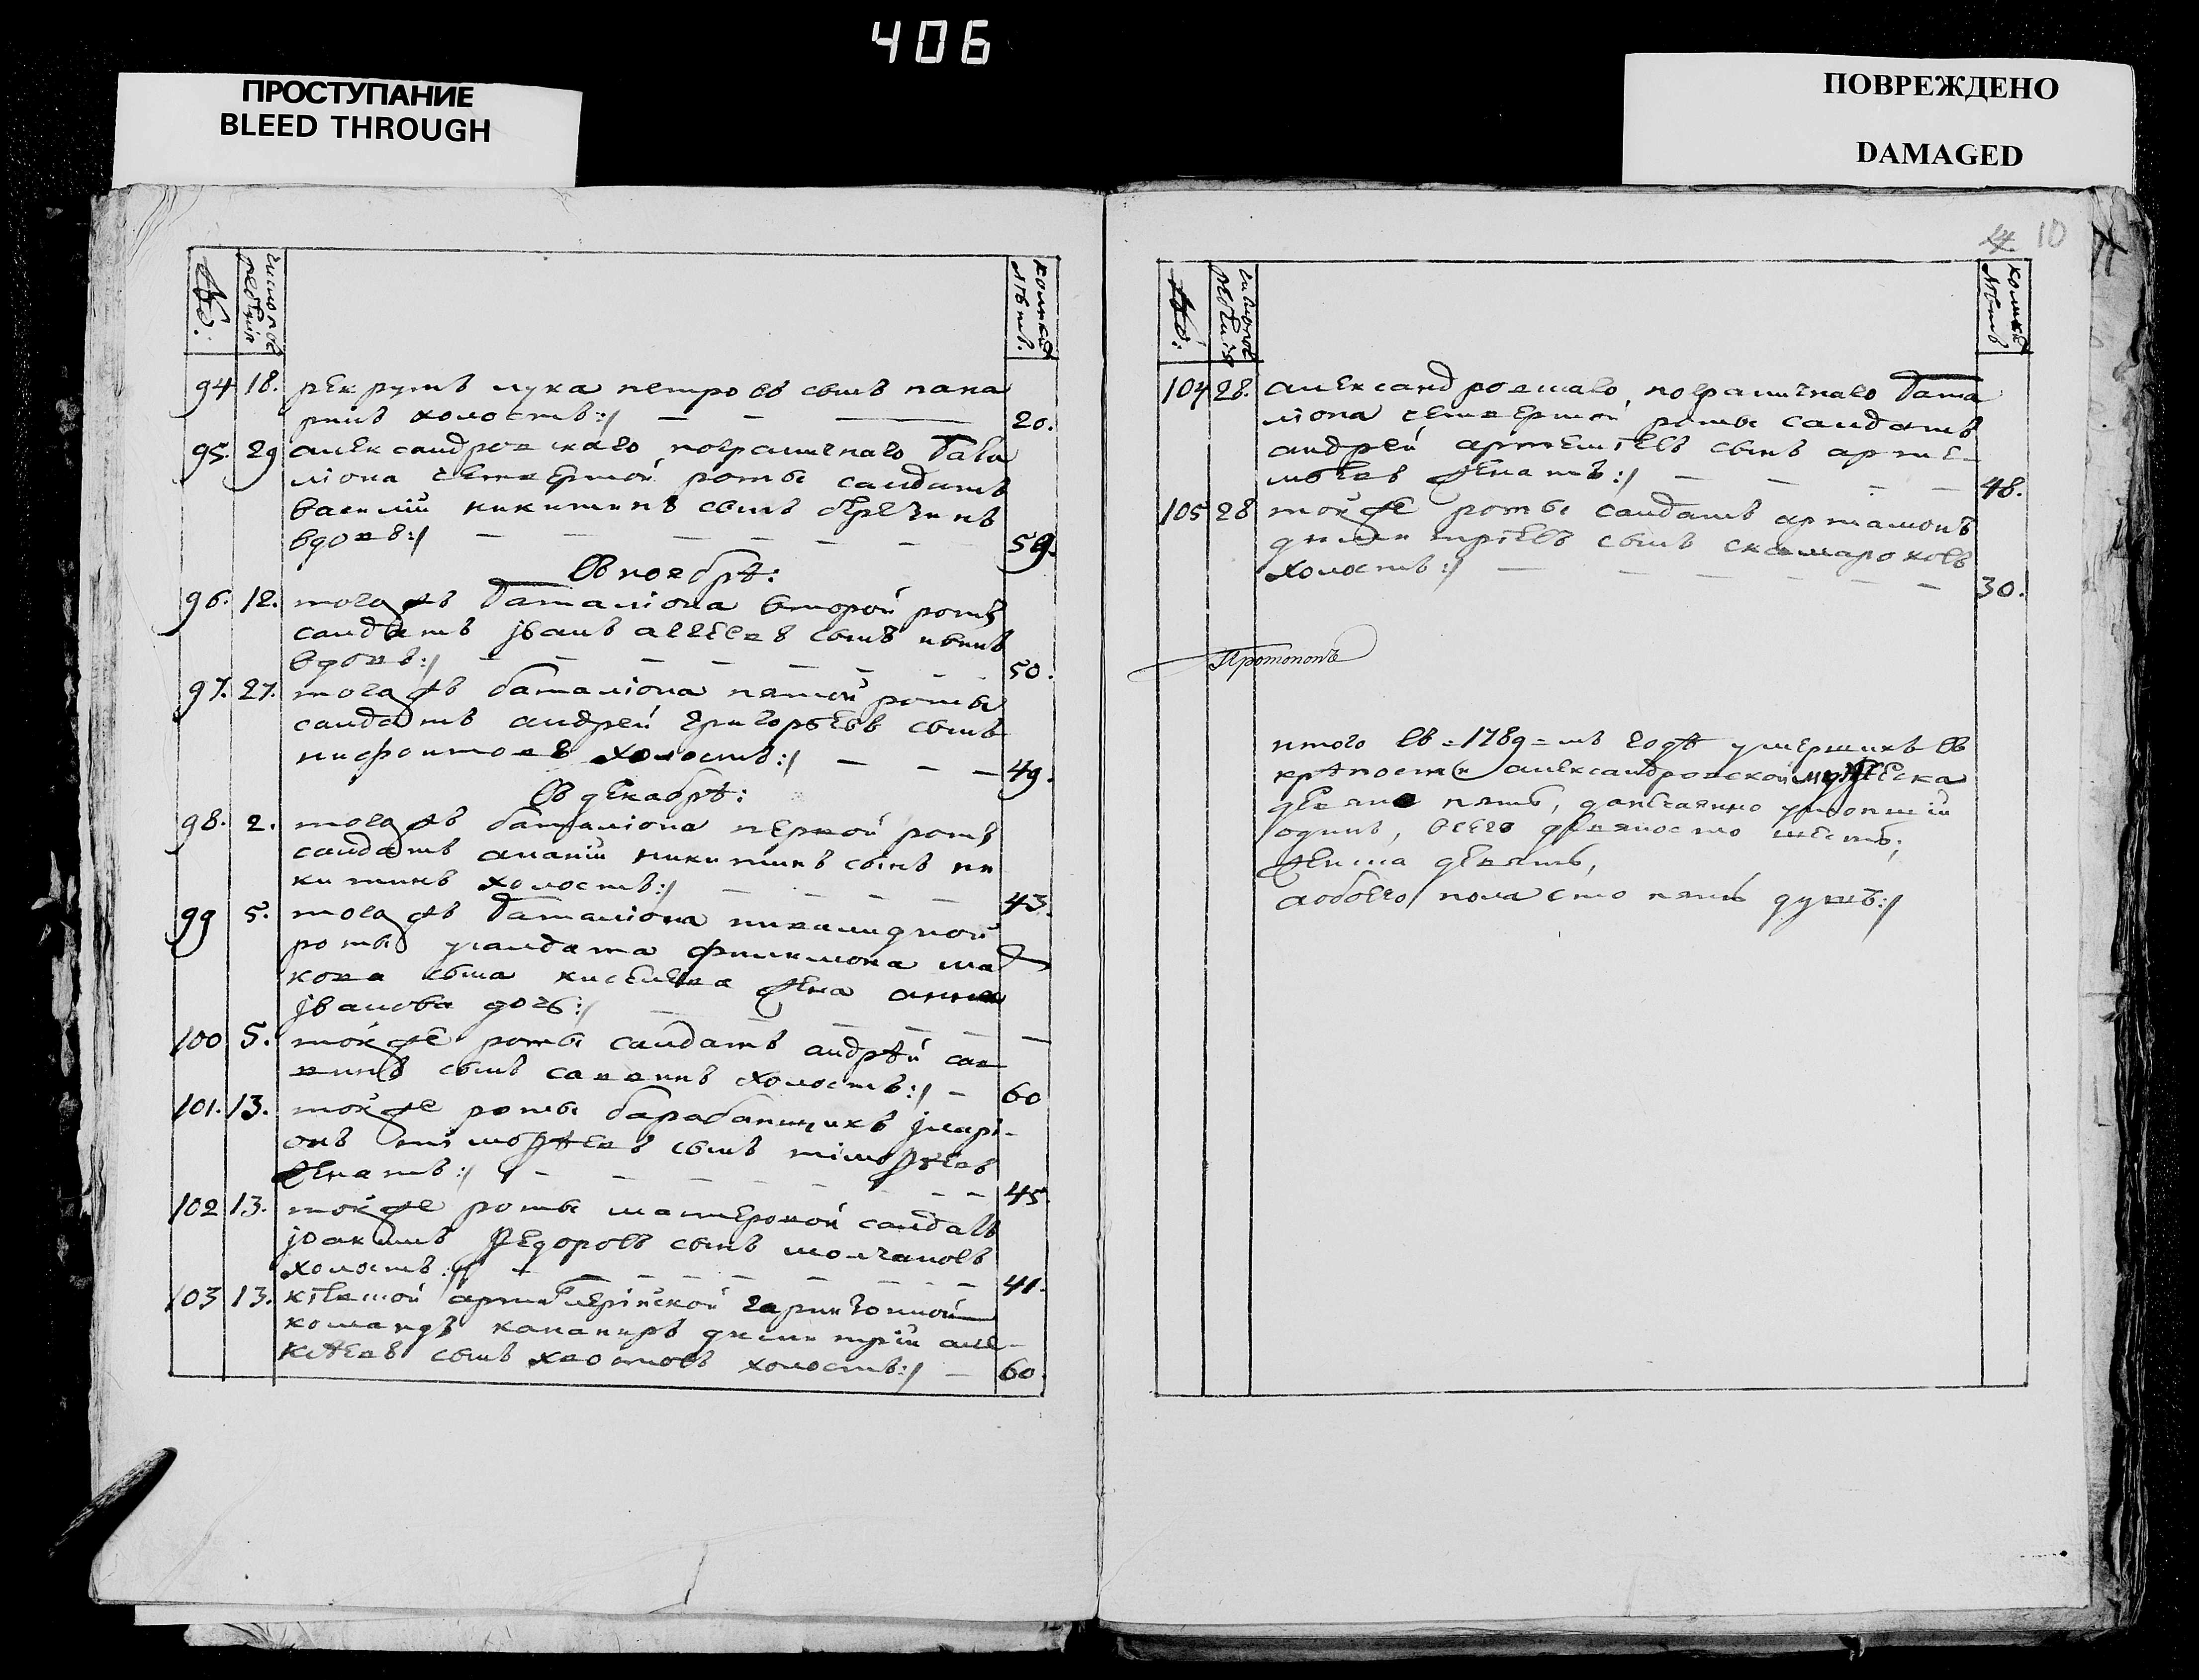 406
ПРОСТУПАНИЕ
BLEED THROUGH
ПОВРЕЖДЕНО
DAMAGED
10
число погребенія
коликихъ лѣтъ.
94 18. рекрутъ лука петровъ сынъ пана
ринъ холостъ:/ 20.
95. 29 александровскаго пограничнаго батал
ліона четвертой роты салдатъ
василій никитинъ сынъ
вдовъ:/ 59.
въ ноябрѣ:
96. 12. тогожъ баталіона второй роты
салдатъ јванъ сынъ
вдовъ:/ 50.
97. 27. тогожъ баталіона пятой роты
салдатъ андрей григорьевъ сынъ
нифонтовъ холостъ:/ 49.
въ декабрѣ:
98. 2. тогожъ баталіона первой роты
салдатъ ананій никитинъ сынъ ни
китинъ холостъ:/ 43.
99 5. тогожъ баталіона инвалидной
роты салдата филимона
сына киселева жена анна
јванова дочь:/
100 5. тойже роты салдатъ андрѣй сав
винъ сынъ саввинъ холостъ:/ 60
101. 13. тойже роты барабанщикъ јларі-
онъ тімоѳѣевъ сынъ тімоѳѣевъ
женатъ:/ 45.
102 13. тойже роты мастеровой салдатъ
јоакимъ ѳедоровъ сынъ молчановъ
холостъ:/ 41.
103 13. артиллерійской гарнизонной
команды канониръ димитрій але-
ксѣевъ сынъ хвостовъ холостъ:/ 60.
число погребенія
коликихъ лѣтъ
104 28. александровскаго пограничнаго бата
ліона четвертой роты салдатъ
андрей артемьевъ сынъ арте-
мьевъ женатъ:/ 48.
105 28 тойже роты салдатъ артамонъ
димитріевъ сынъ скамароховъ
холостъ:/ 30.
Протопопъ
итого въ =1789= мъ годѣ умершихъ въ
крѣпости александровской мужеска
девяно пять, умопшій
одинъ, всего девяносто шесть;
женска девять,
аобоего пола сто пять душъ:/